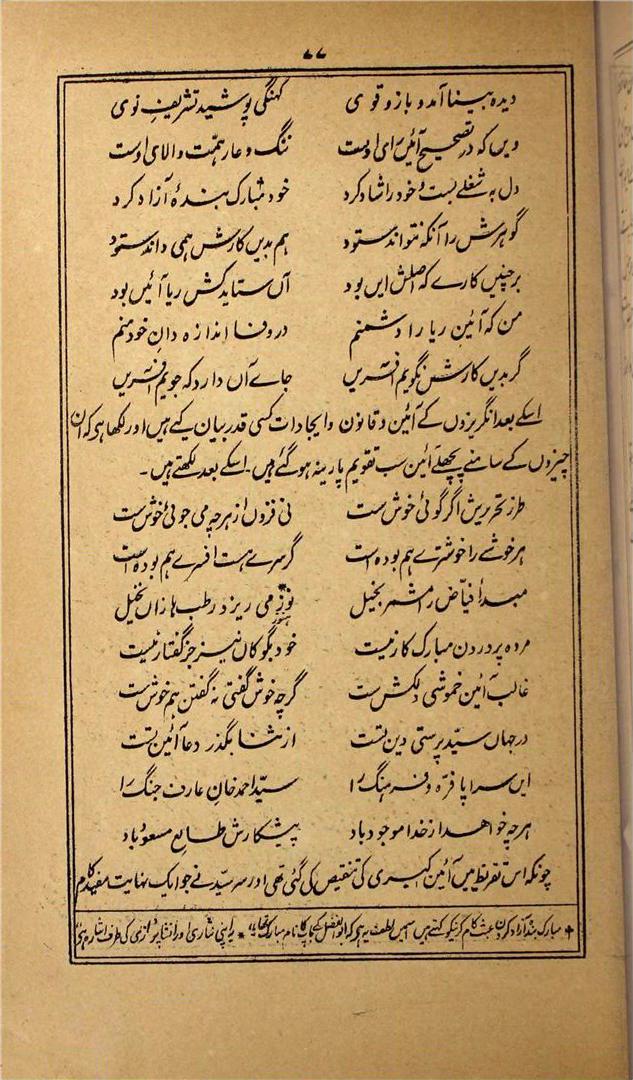 ۷۷
دیدہ بینا آمد و بازو قوی کہنگی پوشید تشریف نوی
ویں کہ در تصحیح آئیں رای اوست ننگ و عار ہمت والای اوست
دل بہ شغلے بست و خود را شاد کرد خود مبارک بندۂ آزاد کرد
گوہرش را آنکہ نتواند ستود ہم بدیں کارش ہمی داند ستود
بر چنیں کارے کہ اصلش ایں بود آں ستاید کش ریا آئیں بود
من کہ آئین ریا را دشمنم در وفا اندازہ دان خود منم
گر بدیں کارش نگویم آفریں جاے آں دارد کہ جویم آفریں
اسکے بعد انگریزوں کے آئین و قانون و ایجادات کسی قدر بیان کیے ہیں اور لکھا ہی کہ ان
چیزوں کے سامنے پچھلے آئین سب تقویم پارینہ ہو گئے ہیں۔ اسکے بعد لکھتے ہیں۔
طرز تحریرش اگر گوئی خوش ست نی فزوں از ہر چہ می جوئی خوش ست
ہر خوشے را خوشترے ہم بودہ است گر سرے ہست افسرے ہم بودہ است
مبدأ فیاض را مشمر بخیل نوز می ریزد رطب ہا زاں نخیل
ہنوز
مردہ پروردن مبارک کار نیست خود بگو کاں نیز جز گفتار نیست
غالب آئین خموشی دلکش ست گرچہ خوش گفتی نہ گفتن ہم خوش ست
در جہاں سید پرستی دین تست از ثنا بگذر دعا آئین تست
ایں سراپا فرہ و فرہنگ را سید احمد خان عارف جنگ را
ہر چہ خواہد از خدا موجود باد پیشکارش طالع مسعود باد
چونکہ اس تقریظ میں آئین اکبری کی تنقیص کی گئی تھی اور سرسید نے جو ایک نہایت مفید کام
† مبارک بندہ آزاد کردن عبث کام کرنیکو کہتے ہیں اسمیں لطف یہ ہی کہ ابو الفضل کے باپ کا نام مبارک تھا۔ * یہ اپنی نثاری اور انشا پردازی کی طرف اشارہ ہی